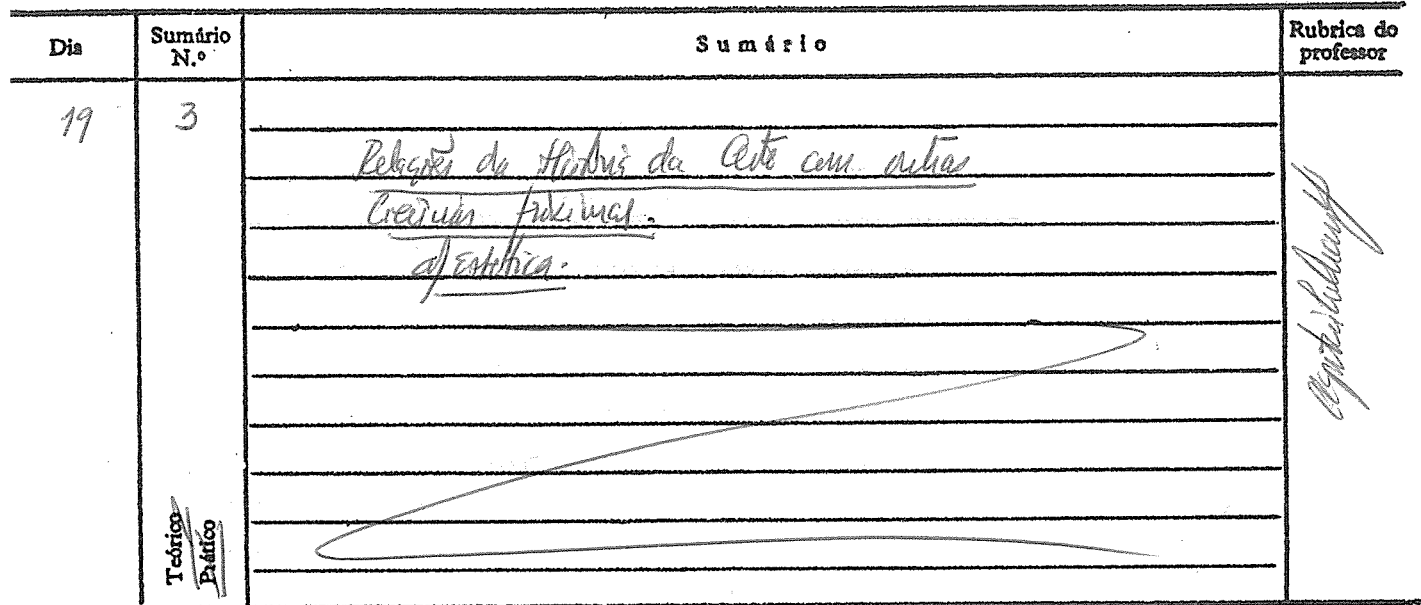 Dia Sumário N.º Sumário Rubrica do professor
19 3
Relações da História da Arte com outras
Ciências próximas.
a) Estética.
Teórico
Prático